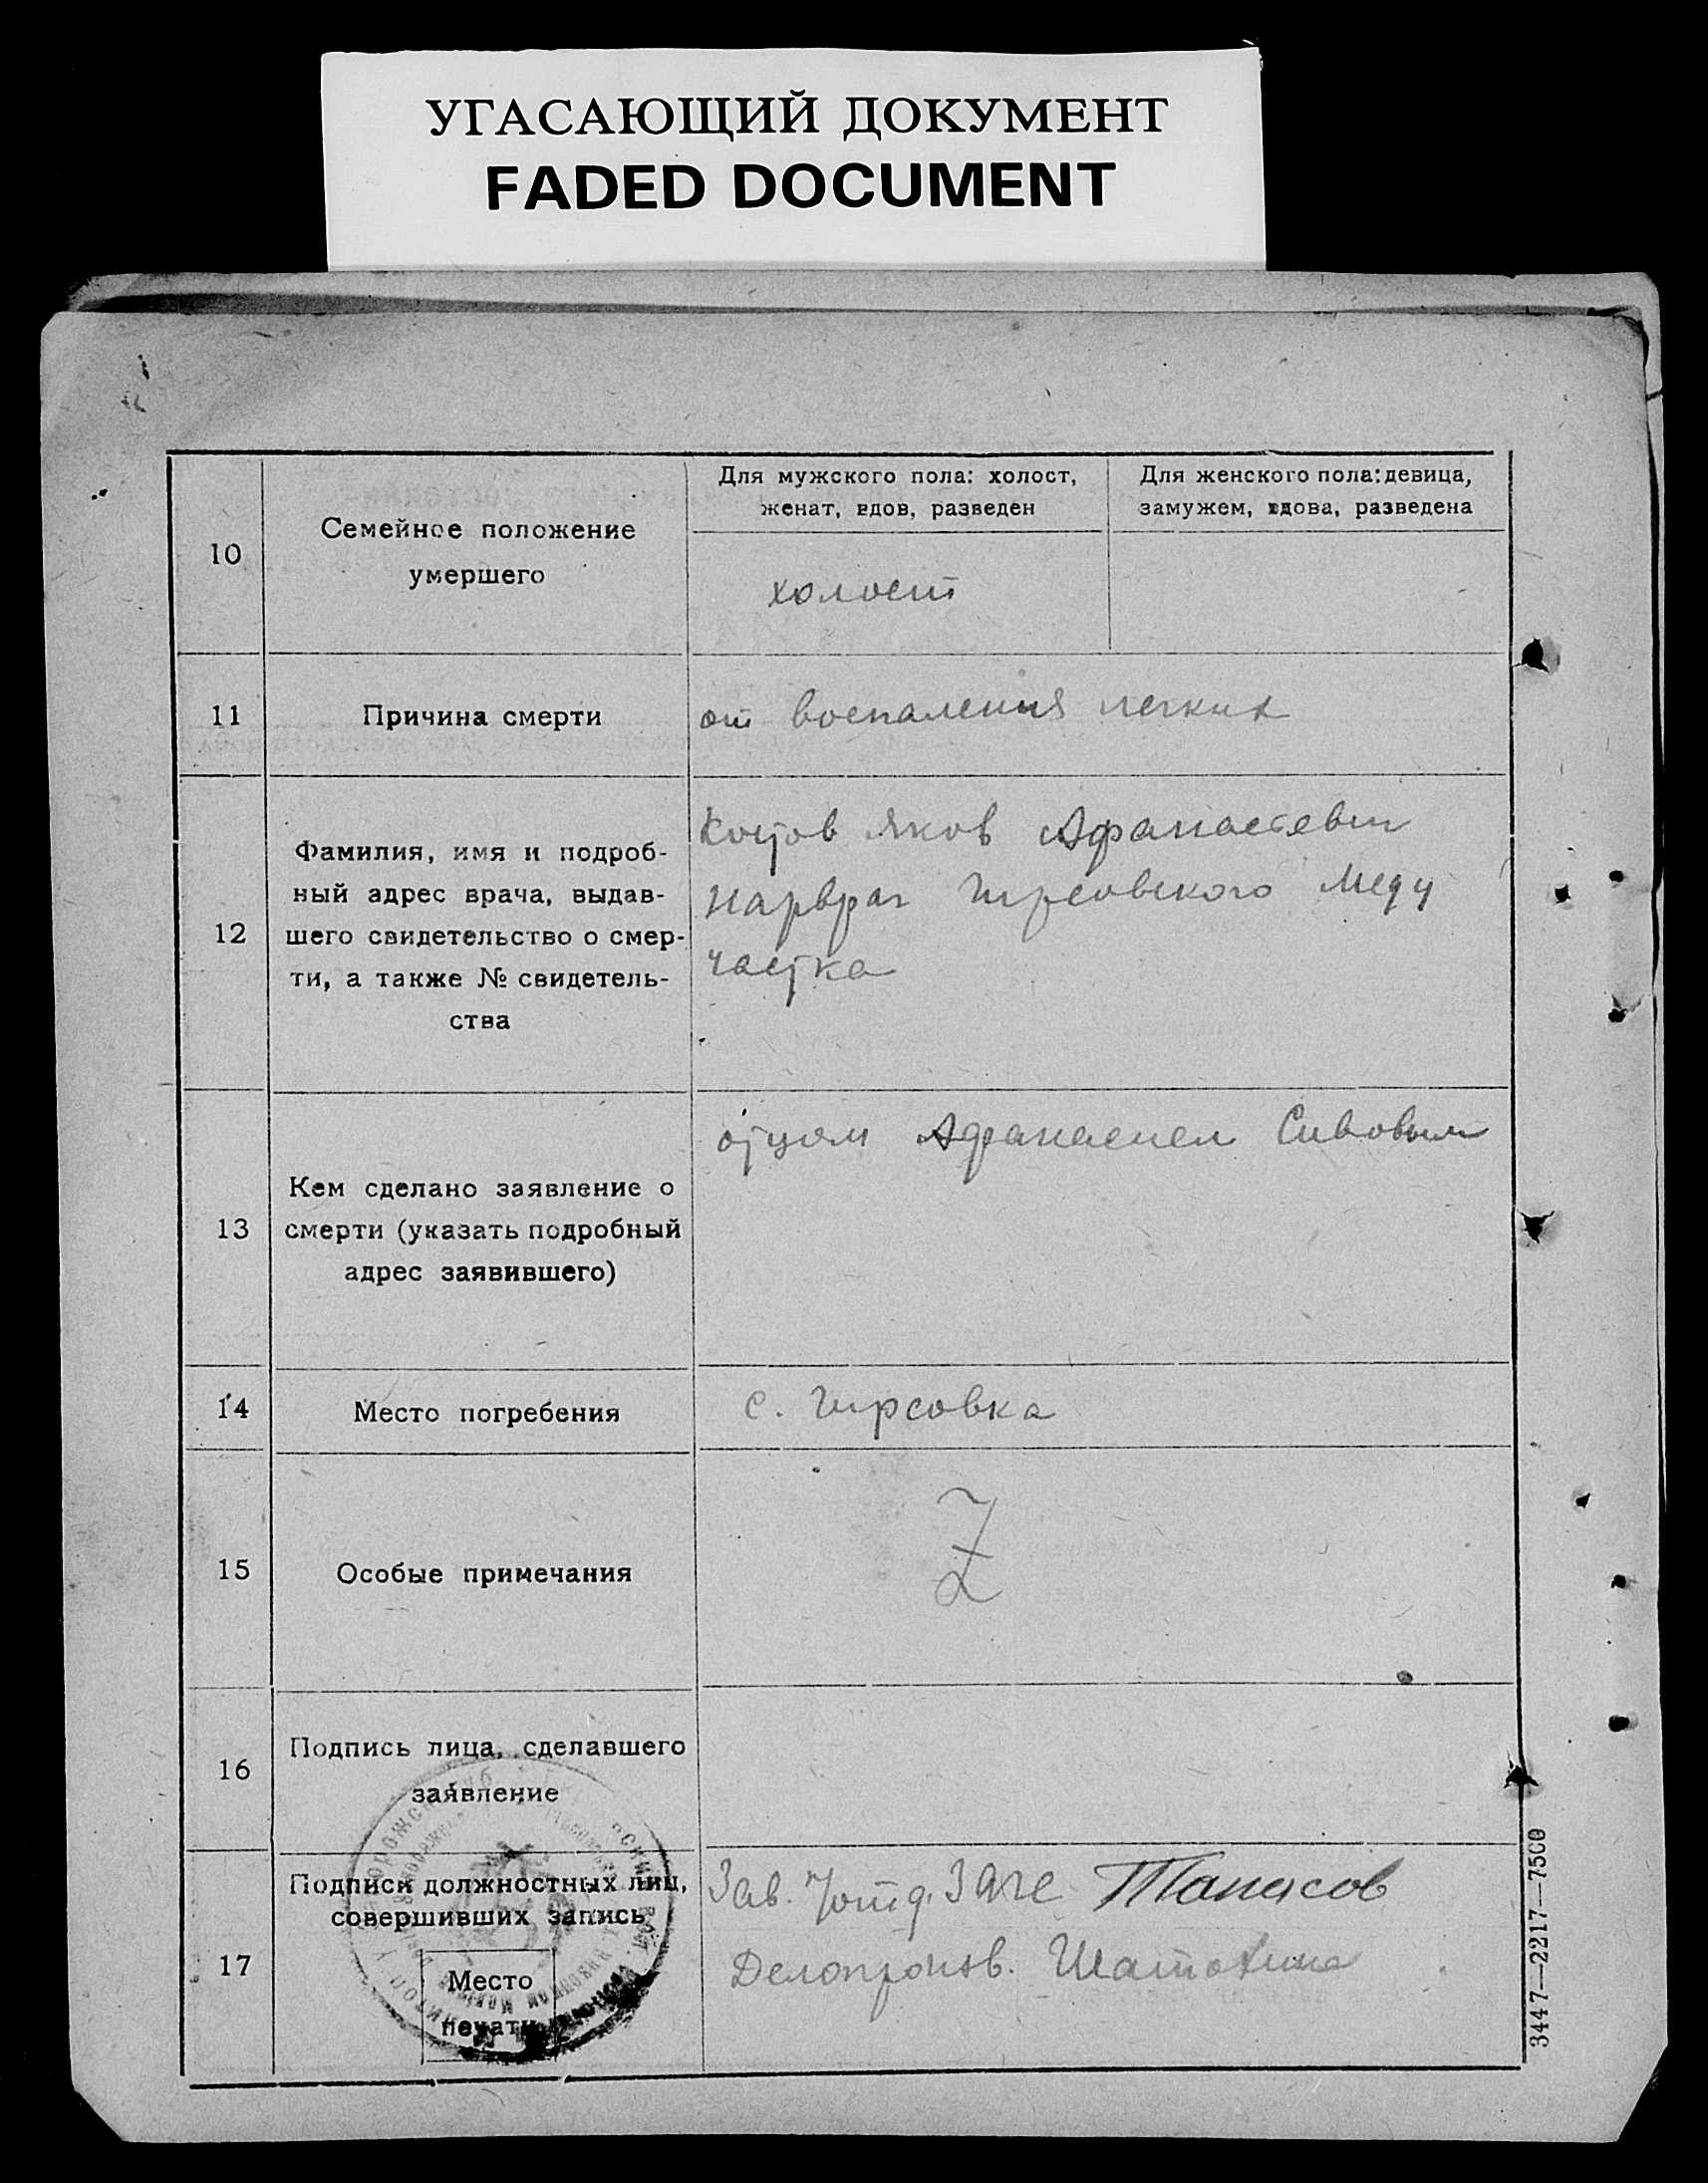 УГАСАЮЩИЙ ДОКУМЕНТ
FADED DOCUMENT
10
Семейное положение
умершего
Для мужского пола: холост,
женат, вдов, разведен
Для женского пола: девица,
замужем, вдова, разведена
холост
11
Причина смерти
от воспаления легких
12
Фамилия, имя и подроб-
ный адрес врача, выдав-
шего свидетельство о смер-
ти, а также № свидетель-
ства
Яков Афанасевич
Гирсовского Меду
частка
13
Кем сделано заявление о
смерти (указать подробный
адрес заявившего)
отцом Афанасием Сивовым
14
Место погребения
с. Гирсовка
15
Особые примечания
Z
16
Подпись лица, сделавшего
заявление
17
Подписи должностных лиц,
совершивших запись
Место
печати
Зав. Танасов
Делопроизв. Шатохина
3447—2217—7500